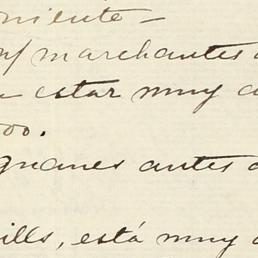 niente –
marchantes
estar muy
00.
guanes antes
ills, está muy